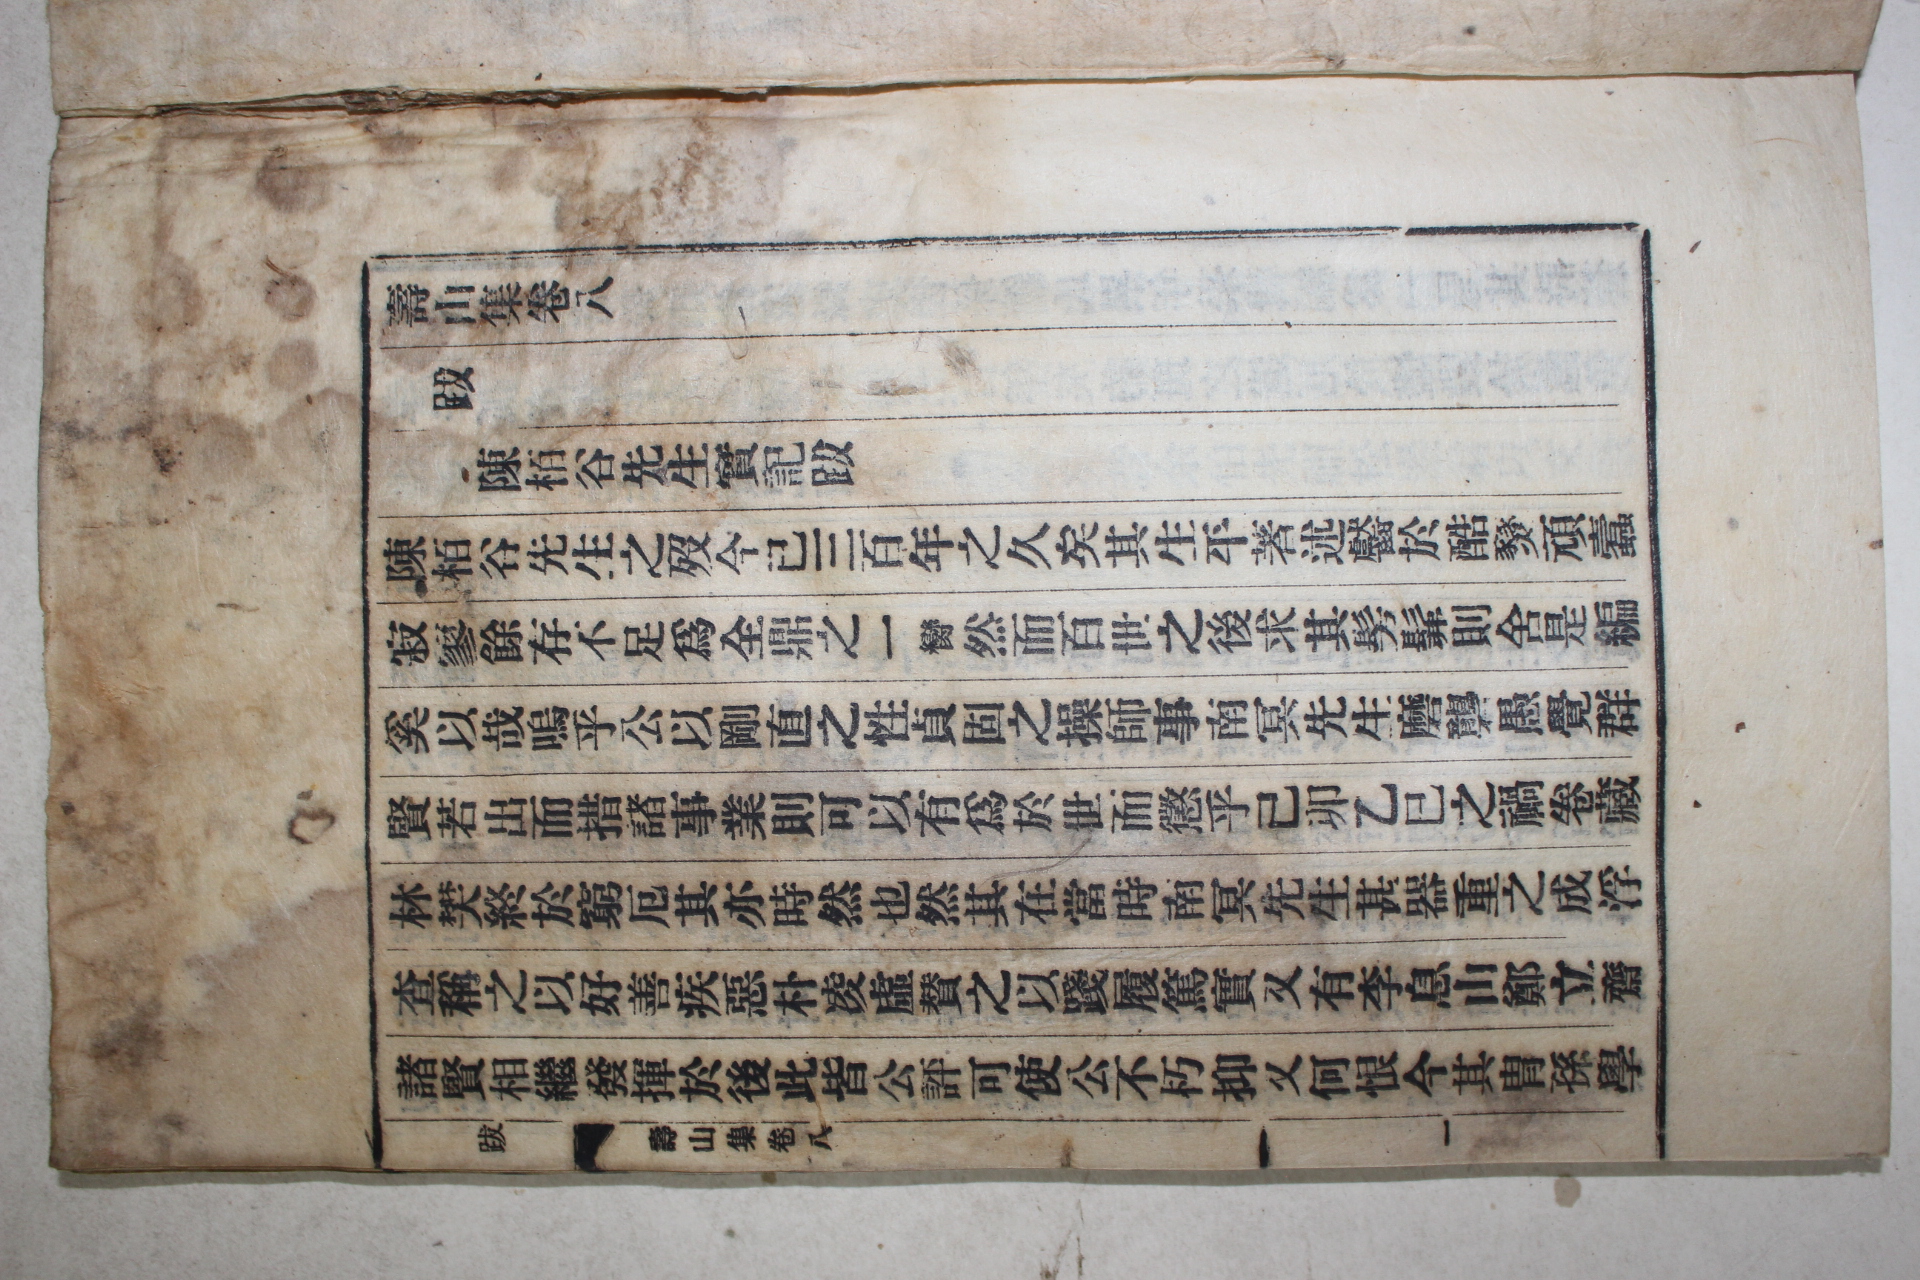 壽山集卷八
跋
陳栢谷先生實記跋
陳栢谷先生之歿今已三百年之久矣其生平著述齾於酷燹頑蠹
寂寥餘存不足爲全鼎之一臠然而百世之後求其髣髴則舍是編
奚以哉嗚乎公以剛直之性貞固之操師事南冥先生磨礱愚覺群
賢若出而措諸事業則可以有爲於世而懲乎己卯乙巳之禍卷藏
林樊終於窮厄其亦時然也然其在當時南冥先生甚器重之成浮
查稱之以好善疾惡朴凌虛贊之以踐履篤實又有李息山鄭立齋
諸賢相繼發揮於後此皆公評可使公不朽抑又何恨今其胄孫學
跋
壽山集卷八
一